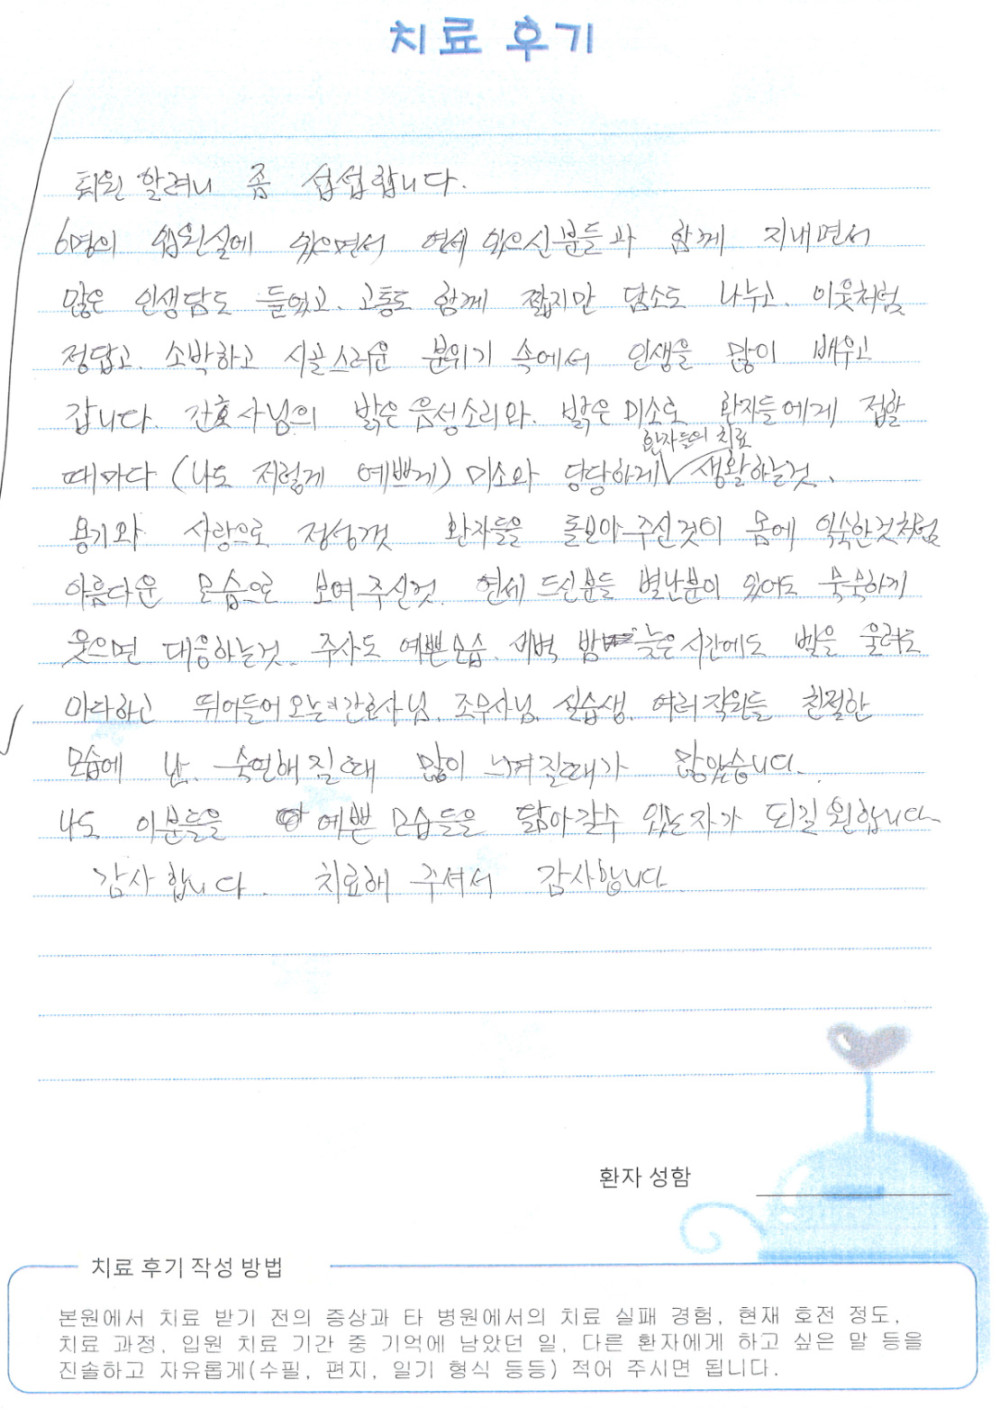 치료 후기
퇴원 할려니 좀 섭섭합니다.
6명의 입원실에 있으면서 연세 있으신분들과 함께 지내면서
많은 인생담도 듣었고. 고통도 함께 짧지만 담소도 나누고. 이웃처럼
정답고. 소박하고 시골스러운 분위기 속에서 인생을 많이 배우고
갑니다. 간호사님의 밝은 음성소리와. 밝은 미소로 환자들에게 접할
환자들의 치료
때마다 (나도 저렇게 예쁘게) 미소와 당당하게 생활하는것.
용기와 사랑으로 정성껏 환자들을 돌보아 주신것이 몸에 익숙한것처럼
아름다운 모습으로 보여주신것. 연세 드신분들 별난분이 있어도 묵묵하게
웃으면 대응하는것. 주사도 예쁜모습. 새벽 밤 늦은 시간에도 벨을 울려도
마다하고 뛰어들어오는 간호사님. 조무사님. 실습생. 여러 직원들 친절한
모습에 난. 숙연해 질때 많이 느껴질때가 많았습니다.
나도 이분들을 예쁜 모습들을 닮아갈수 있는자가 되길 원합니다
감사 합니다. 치료해 주셔서 감사합니다
환자 성함
치료 후기 작성 방법
본원에서 치료 받기 전의 증상과 타 병원에서의 치료 실패 경험, 현재 호전 정도,
치료 과정, 입원 치료 기간 중 기억에 남았던 일, 다른 환자에게 하고 싶은 말 등을
진솔하고 자유롭게(수필, 편지, 일기 형식 등등) 적어 주시면 됩니다.